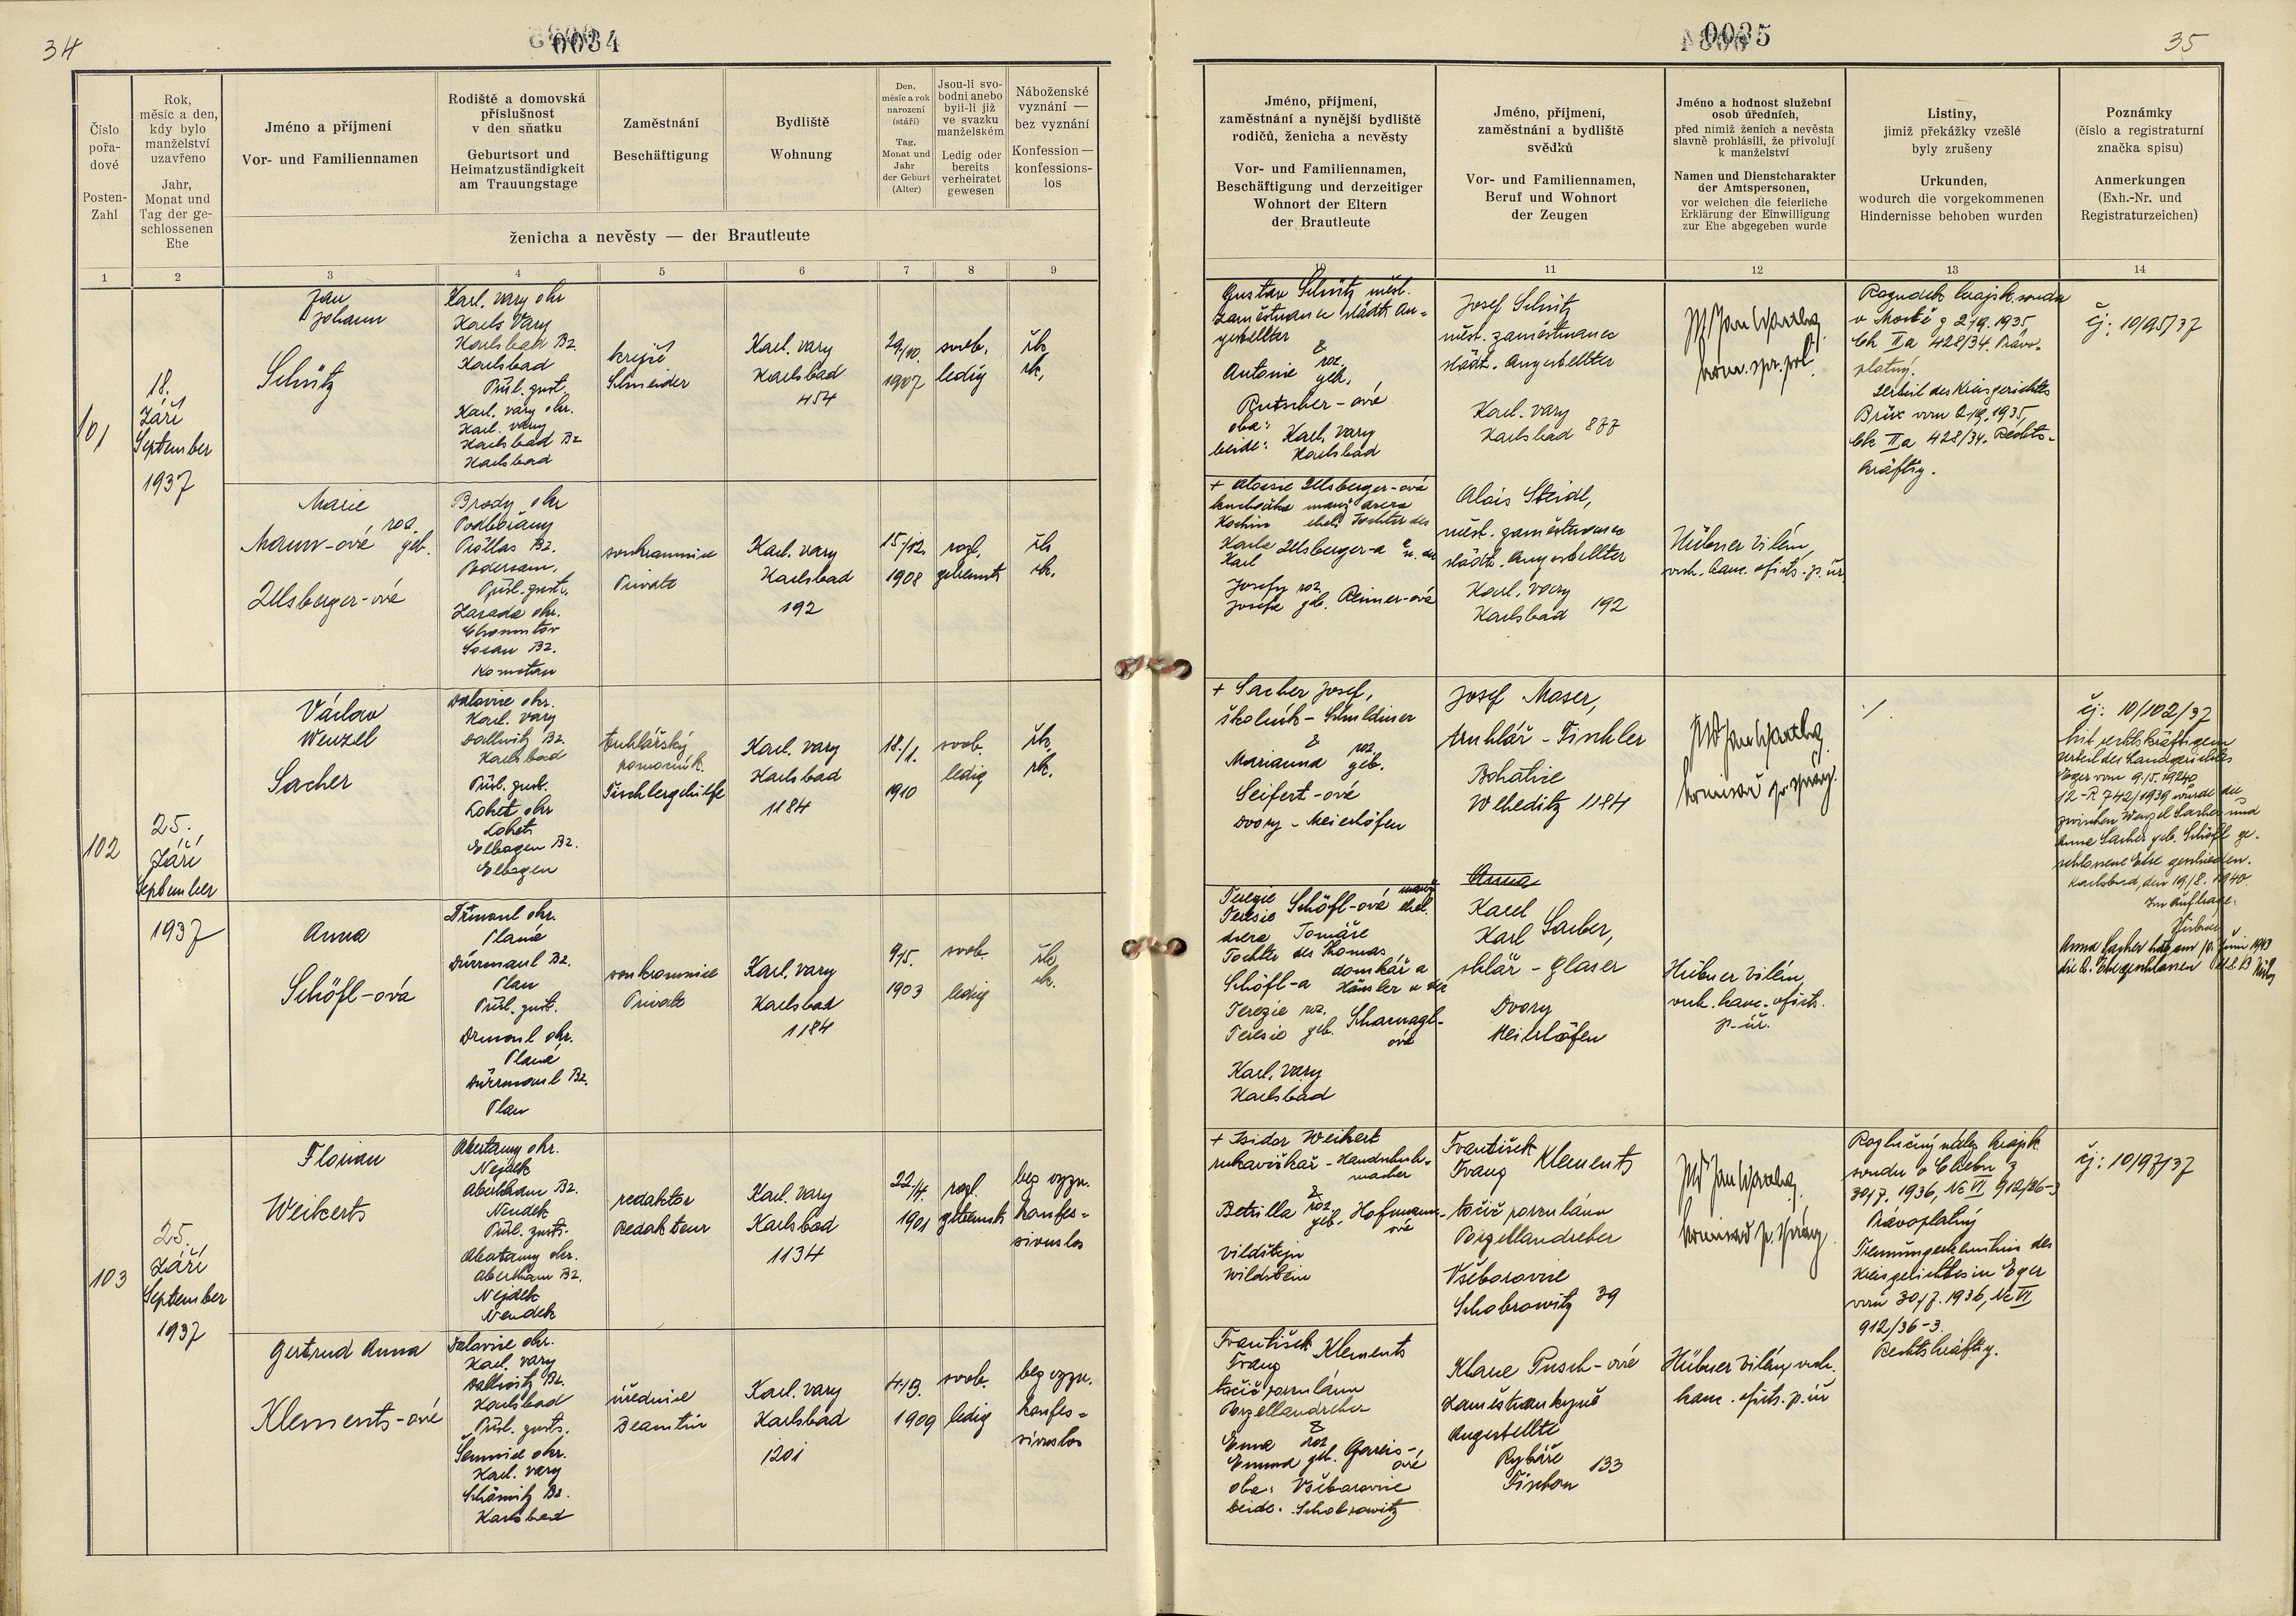 34
0034
Číslo
pořa-
dové
Posten-
Zahl
Rok,
měsíc a den,
kdy bylo
manželství
uzavřeno
Jahr,
Monat und
Tag der ge-
schlossenen
Ehe
Jméno a příjmení
Vor- und Familiennamen
Rodiště a domovská
příslušnost
v den sňatku
Geburtsort und
Heimatzuständigkeit
am Trauungstage
Zaměstnání
Beschäftigung
Bydliště
Wohnung
Den,
měsíc a rok
narození
(stáří)
Tag,
Monat und
Jahr
der Geburt
(Alter)
Jsou-li svo-
bodni anebo
byli-li již
ve svazku
manželském
Ledig oder
bereits
verheiratet
gewesen
Náboženské
vyznání —
bez vyznání
Konfession —
konfessions-
los
ženicha a nevěsty — der Brautleute
1 2 3 4 5 6 7 8 9
101
18.
Září
September
1937
Jan
Johann
Schütz
Karl. Vary okr
Karl. Vary
Karlsbad Bz.
Karlsbad
Přísl. Zust.
Karl. Vary okr.
Karl. Vary
Karlsbad Bz
Karlsbad
krejčí
Schneider
Karl. Vary
Karlsbad
454
29./10.
1907
svob.
ledig
řk.
rk.
Marie
Mann-ová roz. geb.
Ullsberger-ová
Brody okr
Podbořany
Pröllas Bz.
Podersam.
Přísl. Zust.
Zásada okr.
Chomutov
Sosau Bz.
Komotau
soukromnice
Private
Karl. Vary
Karlsbad
192
15./12.
1908
rozl.
getrennt
řk.
rk.
102
25.
Září
September
1937
Václav
Wenzel
Sacher
Dalovice okr.
Karl. Vary
Dallwitz Bz.
Karlsbad
Přísl. Zust.
Loket okr
Loket
Elbogen Bz.
Elbogen
truhlářský
pomocník
Tischlergehilfe
Karl. Vary
Karlsbad
1184
18./1.
1910
svob.
ledig
řk.
rk.
Anna
Schöfl-ová
Drmoul okr.
Planá
Dürrmaul Bz.
Plan
Přísl. Zust.
Drmoul okr.
Planá
Dürrmaul Bz.
Plan
soukromnice
Private
Karl. Vary
Karlsbad
1184
9/5.
1903
svob.
ledig
řk.
rk.
103
25.
Září
September
1937
Florian
Weikerts
Abertamy okr.
Nejdek
Abertham Bz.
Neudek
Přísl. Zust.
Abertamy okr.
Abertham Bz.
Nejdek
Neudek
redaktor
Redakteur
Karl. Vary
Karlsbad
1134
22./4.
1901
rozl.
getrennt
bez vyzn.
konfes-
sionslos
Gertrud Anna
Klements-ová
Dalovice okr.
Karl. Vary
Dallwitz Bz.
Karlsbad
Přísl. Zust.
Šemnice okr.
Karl. Vary
Schömitz Bz.
Karlsbad
úřednice
Beamtin
Karl. Vary
Karlsbad
1201
4./9.
1909
svob.
ledig
bez vyzn.
konfes-
sionslos
0035
35
Jméno, příjmení,
zaměstnání a nynější bydliště
rodičů, ženicha a nevěsty
Vor- und Familiennamen,
Beschäftigung und derzeitiger
Wohnort der Eltern
der Brautleute
Jméno, příjmení,
zaměstnání a bydliště
svědků
Vor- und Familiennamen,
Beruf und Wohnort
der Zeugen
Jméno a hodnost služební
osob úředních,
před nimiž ženich a nevěsta
slavně prohlásili, že přivolují
k manželství
Namen und Dienstcharakter
der Amtspersonen,
vor welchen die feierliche
Erklärung der Einwilligung
zur Ehe abgegeben wurde
Listiny,
jimiž překážky vzešlé
byly zrušeny
Urkunden,
wodurch die vorgekommenen
Hindernisse behoben wurden
Poznámky
(číslo a registraturní
značka spisu)
Anmerkungen
(Exh.-Nr. und
Registraturzeichen)
10 11 12 13 14
Gustav Schütz měst.
zaměstnanec städt. An-
gestellter
&
Antonie roz. geb.
Rutscher-ová
oba: Karl. Vary
beide: Karlsbad
Josef Schütz
měst. zaměstnanec
städt. Angestellter
Karl. Vary
Karlsbad 877
Rozsudek krajsk. soudu
v Mostě z 2/9. 1935
Ck IIa 428/34. Právo-
platný.
Urteil des Kreisgerichtes
Brüx vom 2/9. 1935,
Ck IIa 428/34. Rechts-
kräftig.
čj: 10/95/37
+ Ullsberger-ová
kuchařka manž. dcera
Köchin ehel. Tochter des
Karla Ullsberger-a
Karl
Josefy roz.
Josefa geb. Reiner-ová
Alois Steidl,
měst. zaměstnanec
städt. Angestellter
Karl. Vary
Karlsbad 192
Hübner Vilém,
vrch. kanc. ofic. p. úř
+ Sacher Josef,
školník - Schuldiener
&
Marianna roz. geb.
Seifert-ová
Dvory - Meierhöfen
Josef Moser,
truhlář - Tischler
Bohatice
Weheditz 1184
./.
čj: 10/102/37
Mit rechtskräftigem
Urteil des Landgerichtes
Eger vom 9./5. 1940
12-R 742/1939 wurde die
zwischen Wenzel Sacher und
Anna Sacher geb. Schöfl ge-
schlossene Ehe geschieden.
Karlsbad, den 19/8. 1940.
Im Auftrage:
Hübner
Terezie Schöfl-ová manž.
Teresie ehel.
dcera Tomáše
Tochter des Thomas
Schöfl-a domkář a
Häusler u. der
Terezie roz. Scharnagl-
Teresie geb. ová
Karl. Vary
Karlsbad
Anna
Karel
Karl Sacher,
sklář - Glaser
Dvory
Meierhöfen
Hübner Vilém,
vrch. kanc. ofic.
p. úř.
+ Isidor Weikert
rukavičkář - Handschuh-
macher
&
roz. geb. Hofmann-
ová
Vildštejn
Wildstein
František
Franz Klements
točič porculánu
Porzellandreher
Všeborovice
Schobrowitz 39
Rozlučný nález krajsk.
soudu v Chebu z
30/7. 1936, Nc VI 912/36-3
Právoplatný
Trennungserkenntnis des
Kreisgerichtes in Eger
vom 30/7. 1936, Nc VI
912/36-3.
Rechtskräftig.
čj: 10/97/37
František
Franz Klements
točič porculánu
Porzellandreher
&
Ema roz.
Emma geb. Gareis-
ová
oba: Všeborovice
beide: Schobrowitz
Klara Pusch-ová
zaměstnankyně
Angestellte
Rybáře
Fischern 133
Hübner Vilém, vrch.
kanc. ofic. p. úř